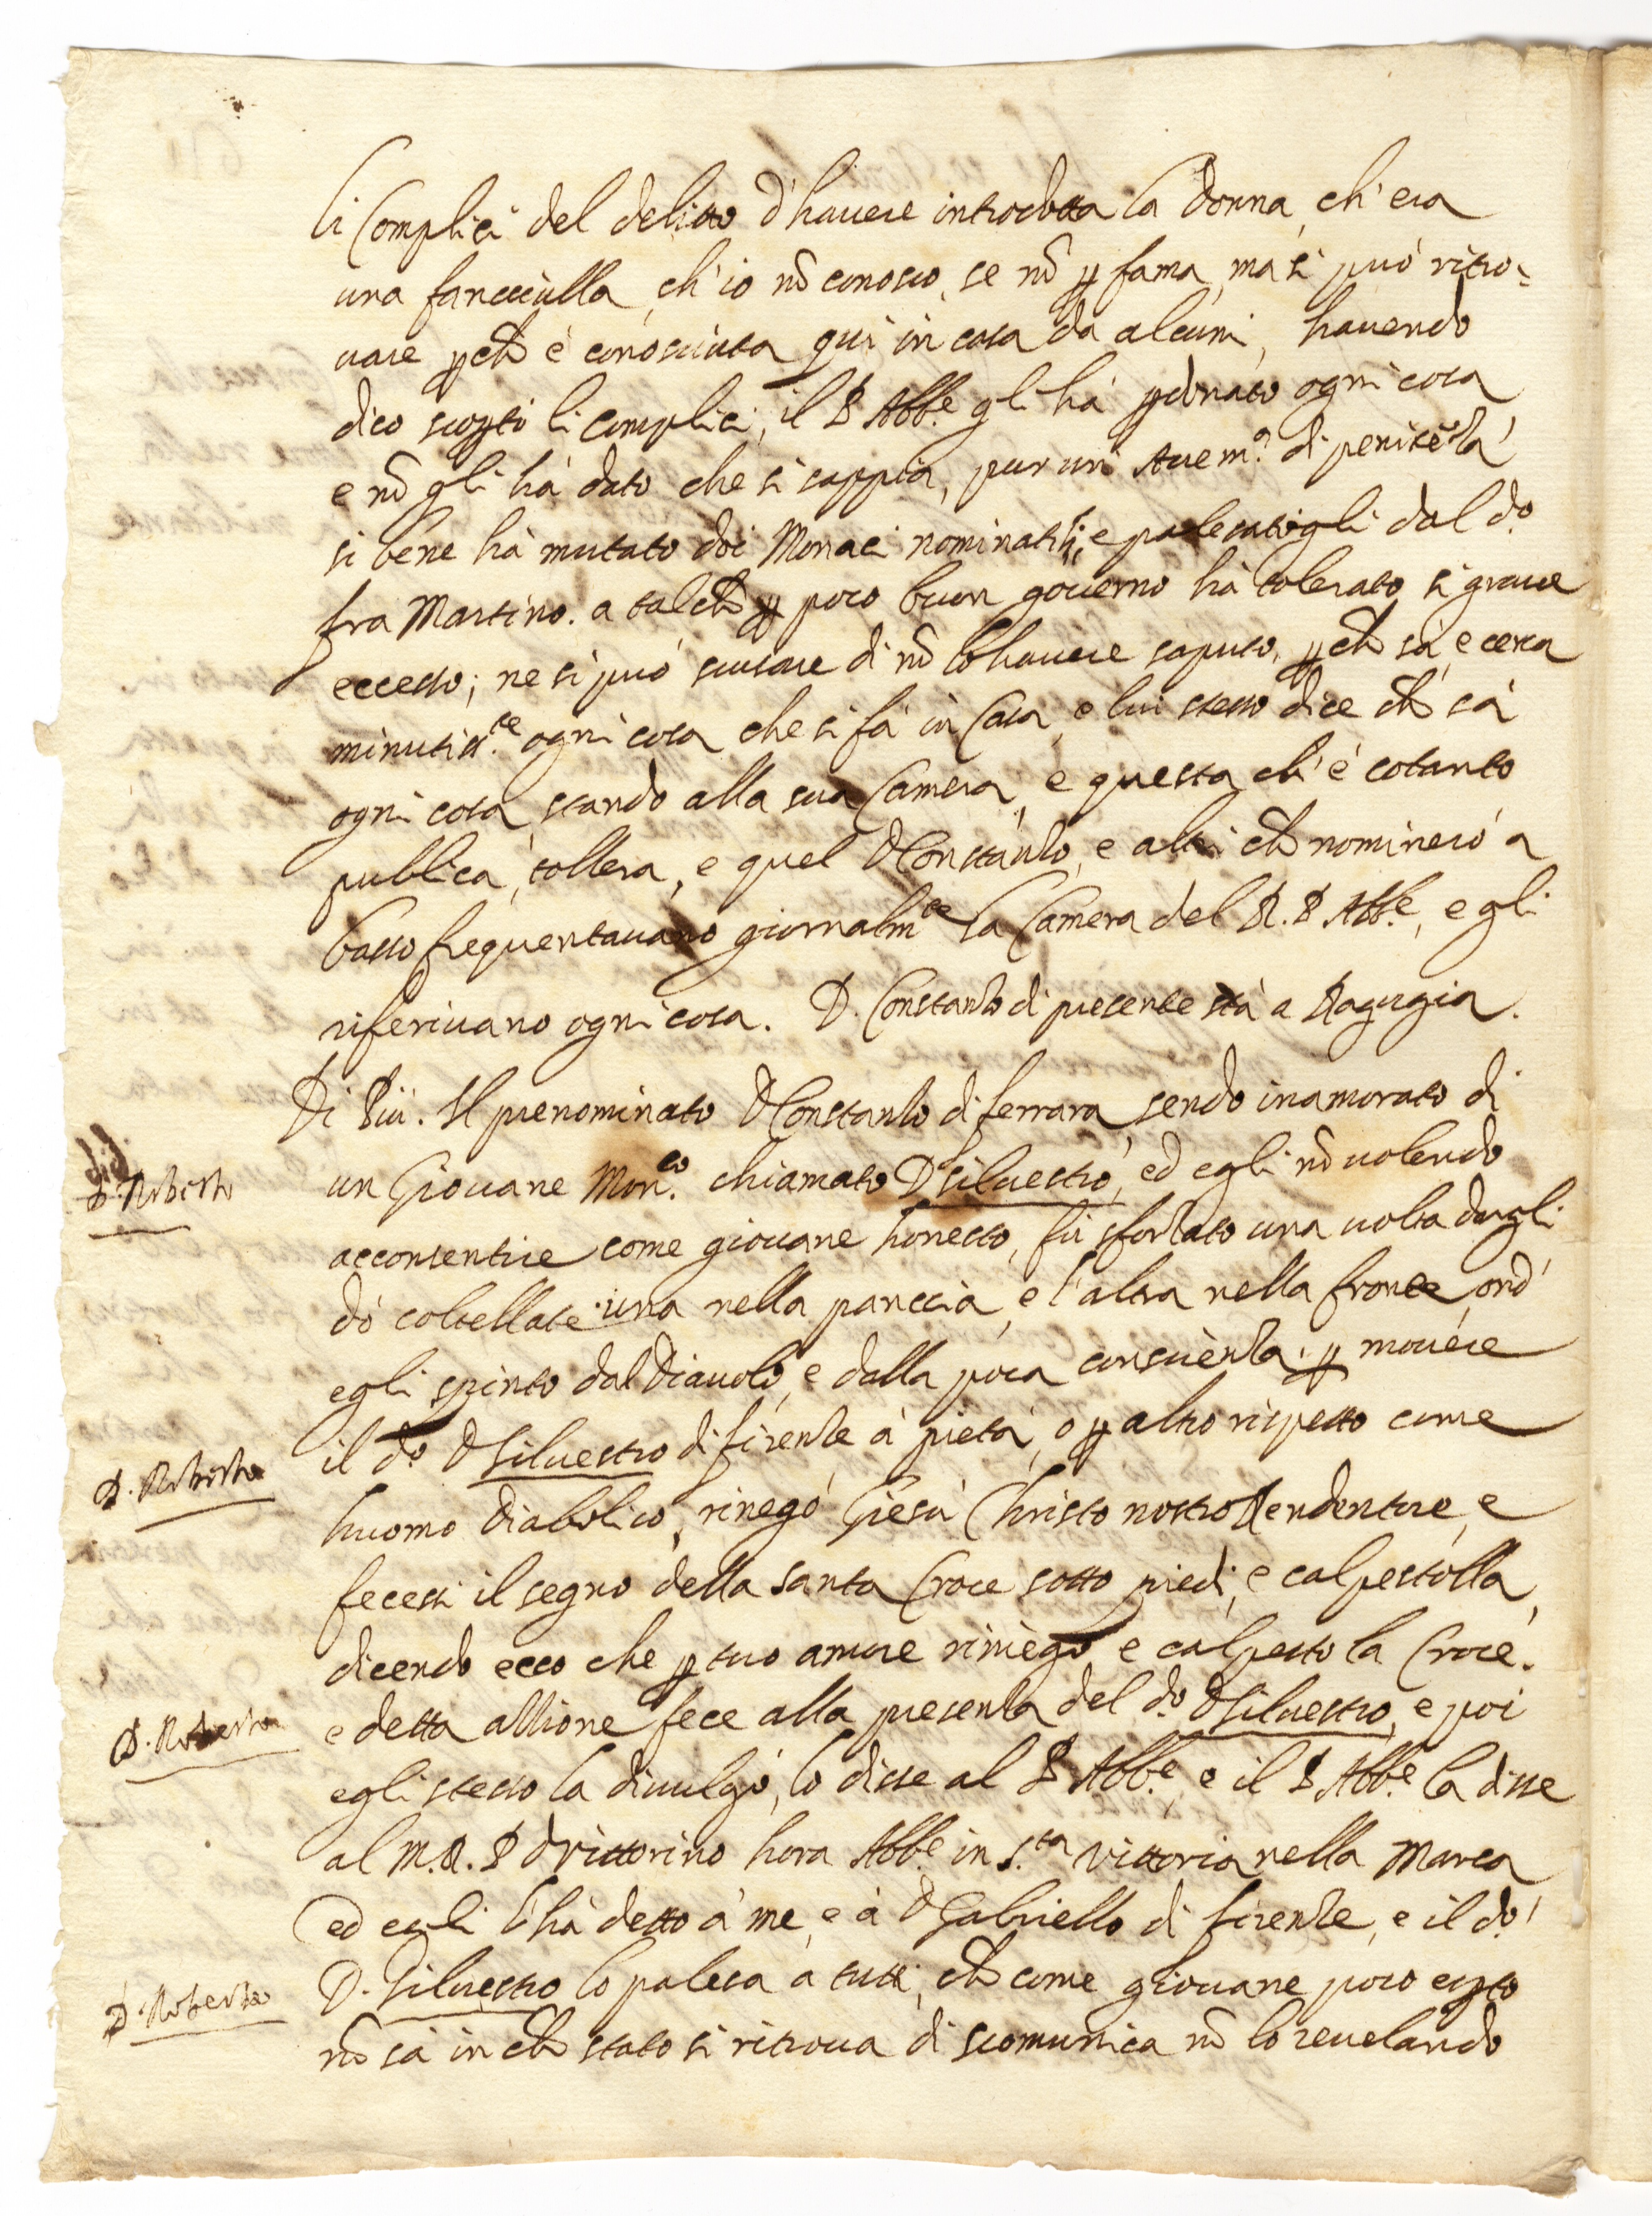 li Complici del delitto d'havere introdotta la donna, ch'era
una fancciulla, ch'io nõ conosco, se nõ ꝑ fama, ma si può ritro-
vare ꝑch̃ è conosciuta qui in casa da alcuni, havendo
dico scoꝑti li complici, il P Abb.e gli hà ꝑdonato ogni cosa
e nõ gli hà dato che si sappia, pur un' Avem.a di penitẽza
si bene hà mutato doi Monaci nominatili, e palesatogli dal d.o
fra Martino. a talch̃ ꝑ poco buon governo hà tolerato si grave
eccesso; ne si può scusare di nõ lo havere saputo, ꝑch̃ sà, e cerca
minutiss.te ogni cosa che si fà in Casa, e lui stesso dice ch̃ sà
ogni cosa, stando alla sua Camera, e questa ch'è cotanto
publica, tollera, e quel D Constanzo, e altri ch̃ nominerò a
basso frequentavano giornalm.te la Camera del R. P Abb.e, e gli
riferivano ogni cosa. D. Constanzo di presente stà a Ragugia.
Di Più. Il prenominato D Constanzo di ferrara, sendo inamorato di
D. Roberto
un Giovane Mon.co chiamato D Silvestro, ed egli nõ volendo
acconsentire come giovane honesto, fù sforzato una volta dargli
dò coltellate una nella panccia, e l'altra nella fronte, ond'
egli spinto dal Diavolo, e dalla poca conscienza, ꝑ movere
D. Roberto
il d.o D Silvestro di firenze à pietà, o ꝑ altro rispetto come
huomo Diabolico, rinegò Giesù Christo nostro Rendentore, e
fecesi il segno della santa Croce sotto piedi, e calpestolla,
dicendo ecco che ꝑ tuo amore riniego, e calpesto la Croce.
D. Roberto
e detta attione fece alla presenza del d.o D Silvestro, e poi
egli stesso la divulgò, lo disse al P Abb.e, e il P Abb.e la disse
al M. R. P D Vittorino hora Abb.e in S.ta Vittoria nella Marca
ed egli l'hà detto à me, e à D Gabriello di firenze, e il d.o
D. Roberto
D. Silvestro lo palesa a tutti, ch̃ come giovane poco eꝑto
nõ sà in ch̃ stato si ritrova di scomunica nõ lo revelando